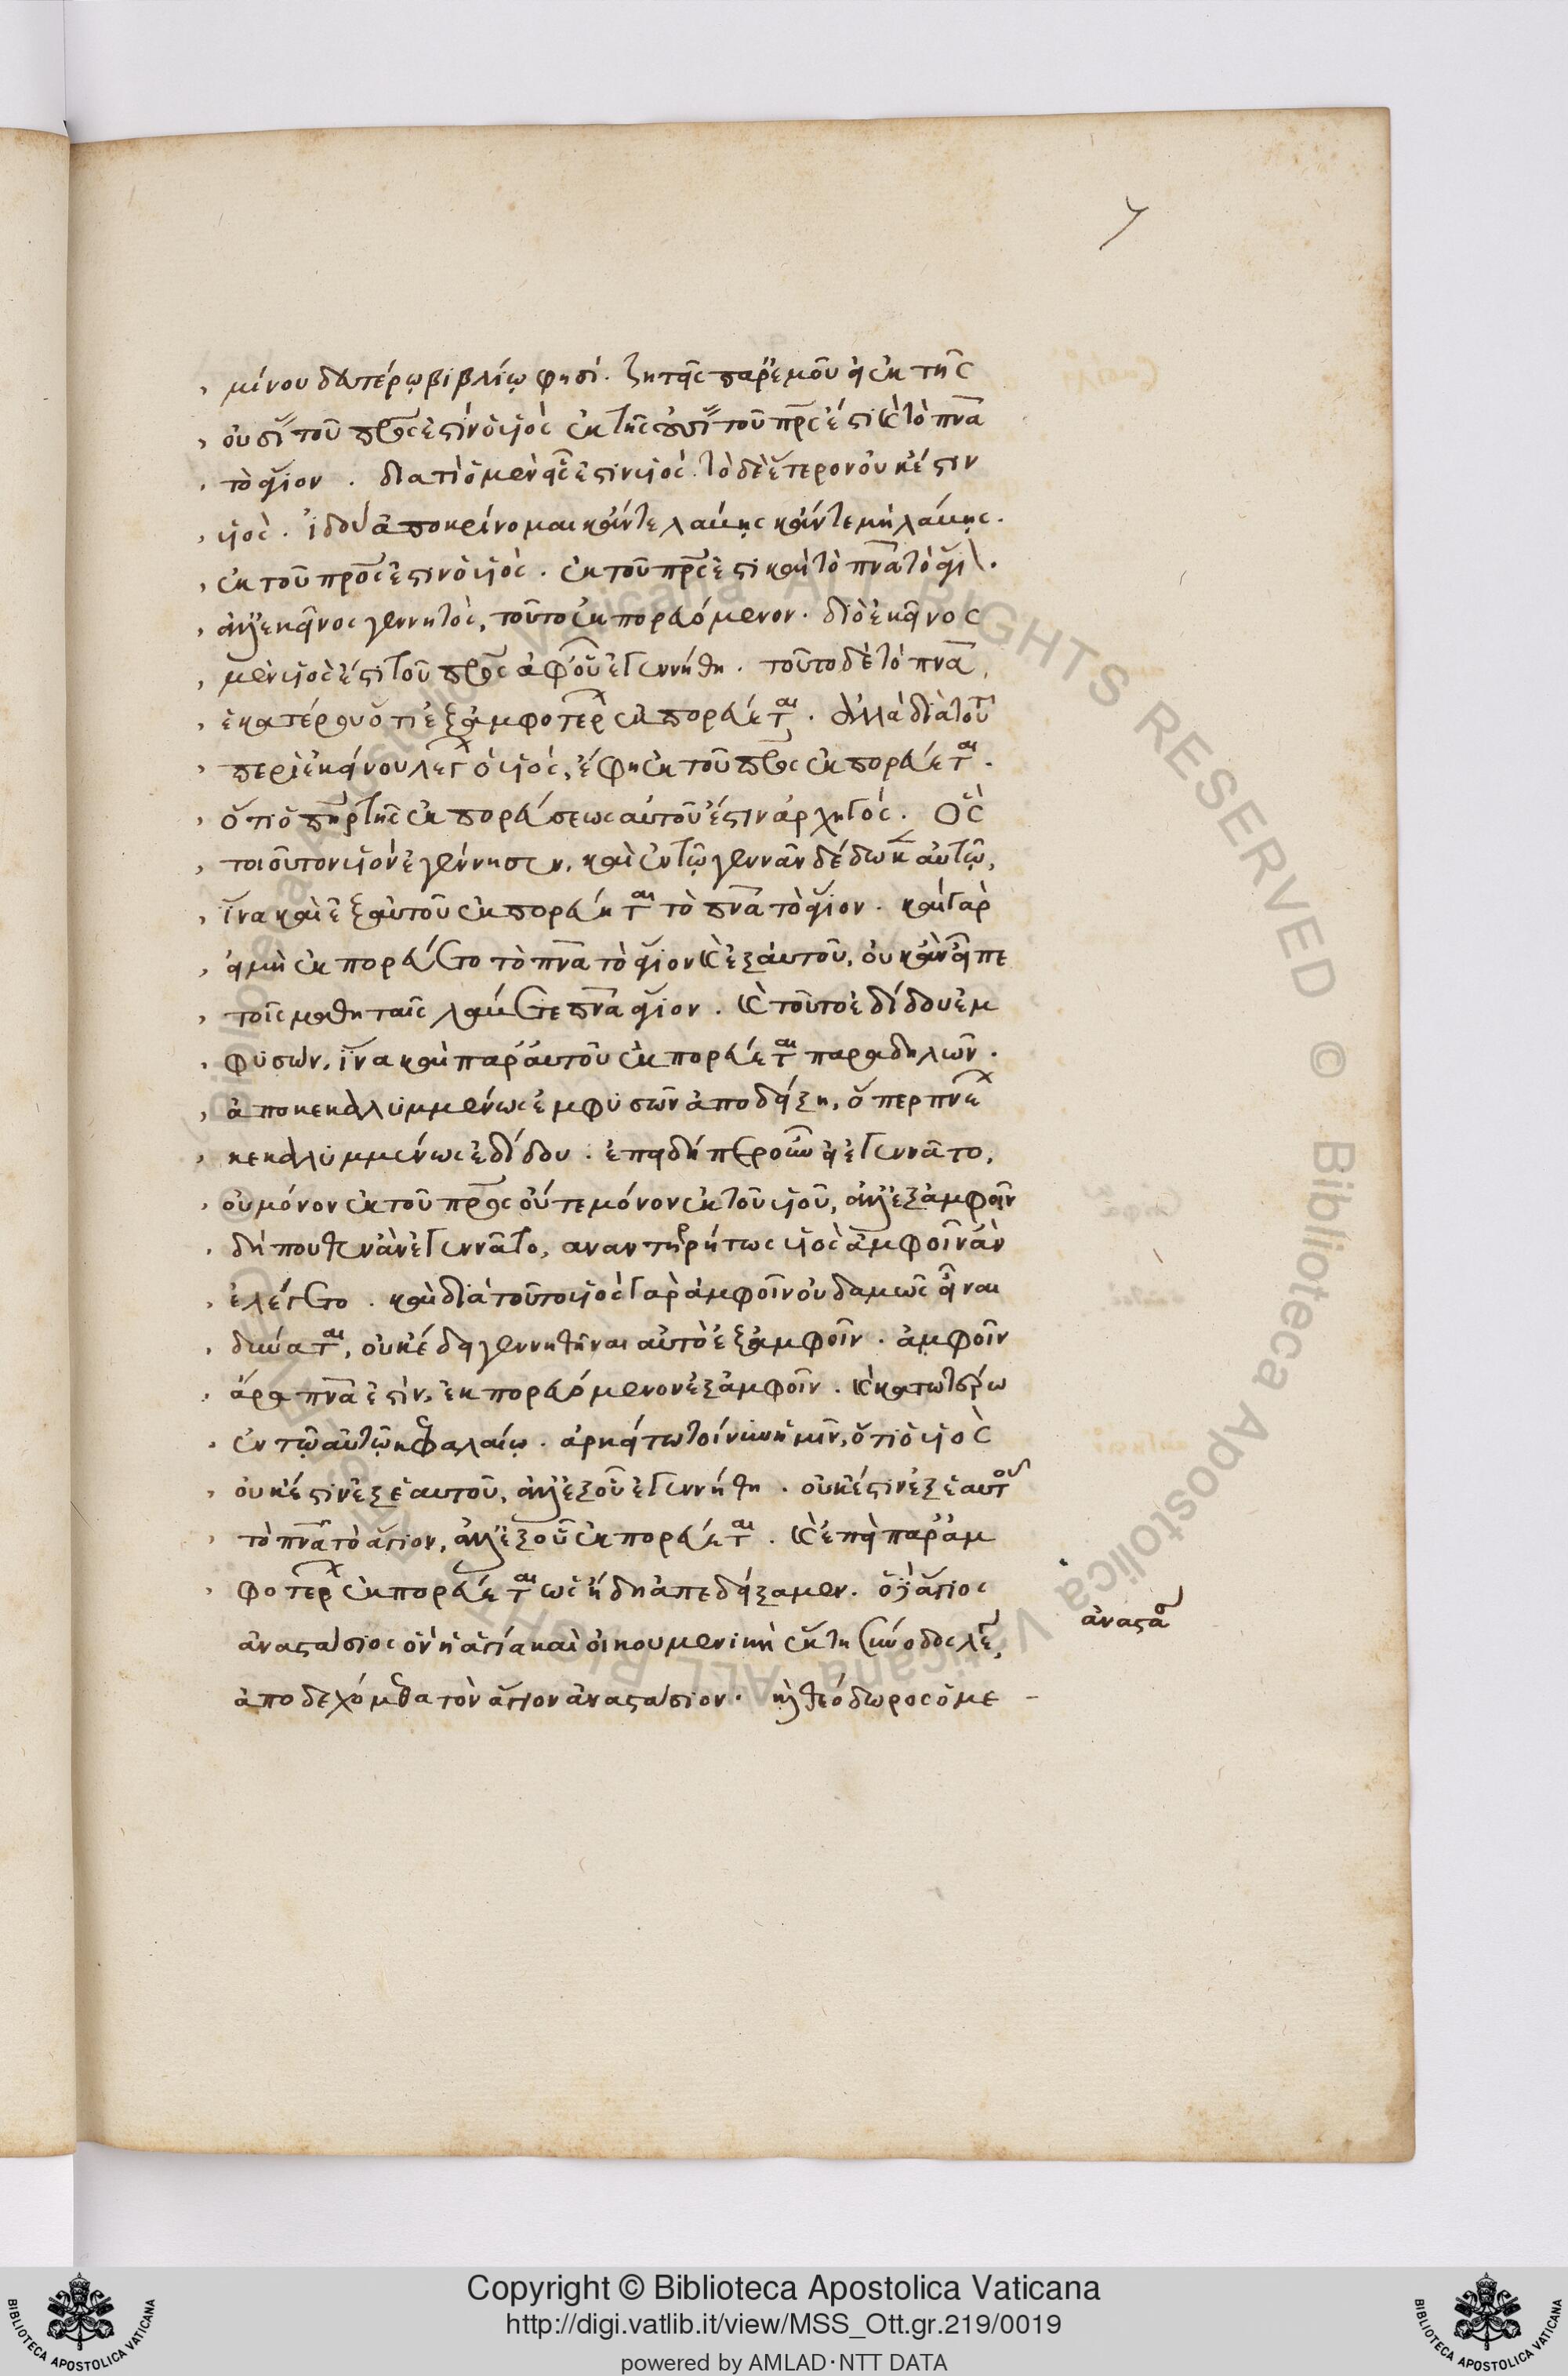 7
, μίνου δευτέρῳ βιβλίῳ φησί. ζητεῖς παρ' ἐμοῦ εἰ ἐκ τῆς
, οὐσί τοῦ πρς ἐστὶν ὁ υἱὸς ἐκ τῆς οὐσί τοῦ πρς ἐστι κ τὸ πνα
, τὸ ἅγιον . διατί ὁ μὲν εἷς ἐστιν υἱὸς. τὸ δὲ ἕτερον οὐκ ἔστιν
, υἱὸς . ἰδοὺ ἀποκρίνομαι κἄν τε λάβῃς κἄν τε μὴ λάβῃς.
, ἐκ τοῦ προς ἐστιν ὁ υἱὸς . ἐκ τοῦ πρς ἐστι καὶ τὸ πνα τὸ ἅγι\.
, ἀλλ' ἐκεῖνος γεννητὸς, τοῦτο ἐκπορευόμενον. διὸ ἐκεῖνος
, μὲν υἱὸς ἐστι τοῦ πρς ἀφ' οὗ ἐγεννήθη . τοῦτο δὲ τὸ πνα,
, ἑκατέρου ὅτι ἐξ ἀμφοτέρ ἐκπορεύετ αι . ἀλλὰ διὰ τοῦτ
, περὶ ἐκείνου λέγ ὁ υἱὸς, ἔφη ἐκ τοῦ πρς ἐκπορεύετ αι.
, ὅτι ὁ πηρ τῆς ἐκπορεύσεως αὐτοῦ ἐστιν ἀρχηγός. Ὃς
, τοιοῦτον υἱὸν ἐγέννησεν, καὶ ἐν τῷ γεννᾶν δέδωκ αὐτῷ,
, ἵνα καὶ ἐξ αὐτοῦ ἐκπορεύητ αι τὸ πνα τὸ ἅγιον . καὶ γὰρ
, εἰ μὴ ἐκπορεύετο τὸ πνα τὸ ἅγιον κ ἐξ αὐτοῦ, οὐκ ἂν εἶπε
, τοῖς μαθηταῖς λάβετε πνα ἅγιον . κ τοῦτο ἐδίδου ἐμ
, φυσῶν, ἵνα καὶ παρ' αὐτοῦ ἐκπορεύετ αι παραδηλῶν .
, ἀποκεκαλυμμένως ἐμφυσῶν ἀποδείξῃ, ὅπερ πνέ
, κεκαλυμμένως ἐδίδου . ἐπειδήπερ οὖν εἰ ἐγεννᾶτο,
, οὐ μόνον ἐκ τοῦ προς οὔτε μόνον ἐκ τοῦ υἱοῦ, ἀλλ' ἐξ ἀμφοῖν
, δήπουθεν ἂν ἐγεννᾶτο, αναντιρρήτως υἱὸς ἀμφοῖν ἂν
, ἐλέγετο . καὶ διὰ τοῦτο υἱὸς γὰρ ἀμφοῖν οὐδαμῶς εἶναι
, δύνατ αι, οὐκ ἔδει γεννηθῆναι αὐτὸ ἐξ ἀμφοῖν . ἀμφοῖν
, ἄρα πνα ἐστὶν, ἐκπορευόμενον ἐξ ἀμφοῖν . κ κατωτέρω
, ἐν τῷ αὐτῷ κεφαλαίῳ . ἀρκείτω τοίνυν ἡμῖν, ὅτι ὁ υἱὸς
, οὐκ ἔστιν ἐξ ἑαυτοῦ, ἀλλ' ἐξ οὗ ἐγεννήθη . οὐκ ἔστιν ἐξ ἑαυτοῦ
, τὸ πνα τὸ ἅγιον, ἀλλ' ἐξ οὗ ἐκπορεύετ αι . κ ἐπεὶ παρ' ἀμ
, φοτέρ ἐκπορεύετ αι ὡς ἤδη ἀπεδείξαμεν. ὁ δὲ ἅγιος
ἀναστάσιος ὃν ἡ ἁγία καὶ οἰκουμενικὴ ἕκτη σύνοδος λέγ,
ἀποδεχόμεθα τὸν ἅγιον ἀναστάσιον . κ θεόδωρος ὁ με -
ἀναστασ
Copyright © Biblioteca Apostolica Vaticana
http://digi.vatlib.it/view/MSS_Ott.gr.219/0019
powered by AMLAD·NTT DATA
BIBLIOTECA APOSTOLICA VATICANA
BIBLIOTECA APOSTOLICA VATICANA
© Biblioteca Apostolica Vaticana ALL RIGHTS RESERVED